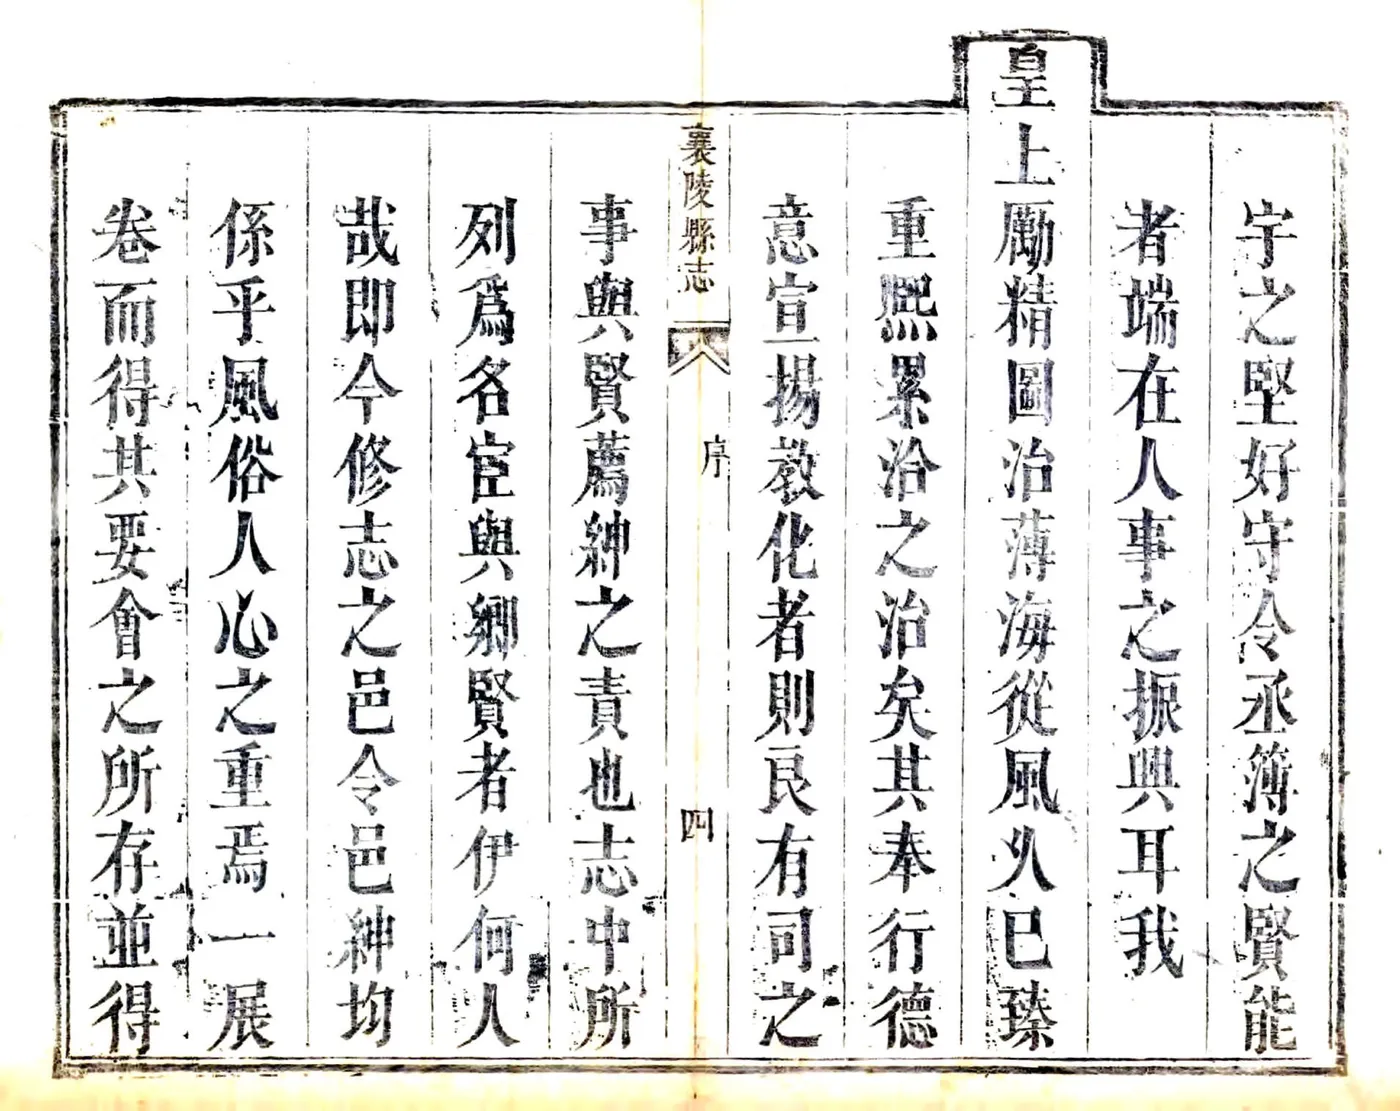 宇之堅好守令丞簿之賢能
者端在人事之振興耳我
皇上勵精圖治薄海從風久已臻
重熙累洽之治矣其奉行德
意宣揚教化者則良有司之
襄陵縣志
序
四
事與賢薦紳之責也志中所
列爲名宦與鄉賢者伊何人
哉即今修志之邑令邑紳均
係乎風俗人心之重焉一展
卷而得其要會之所存並得